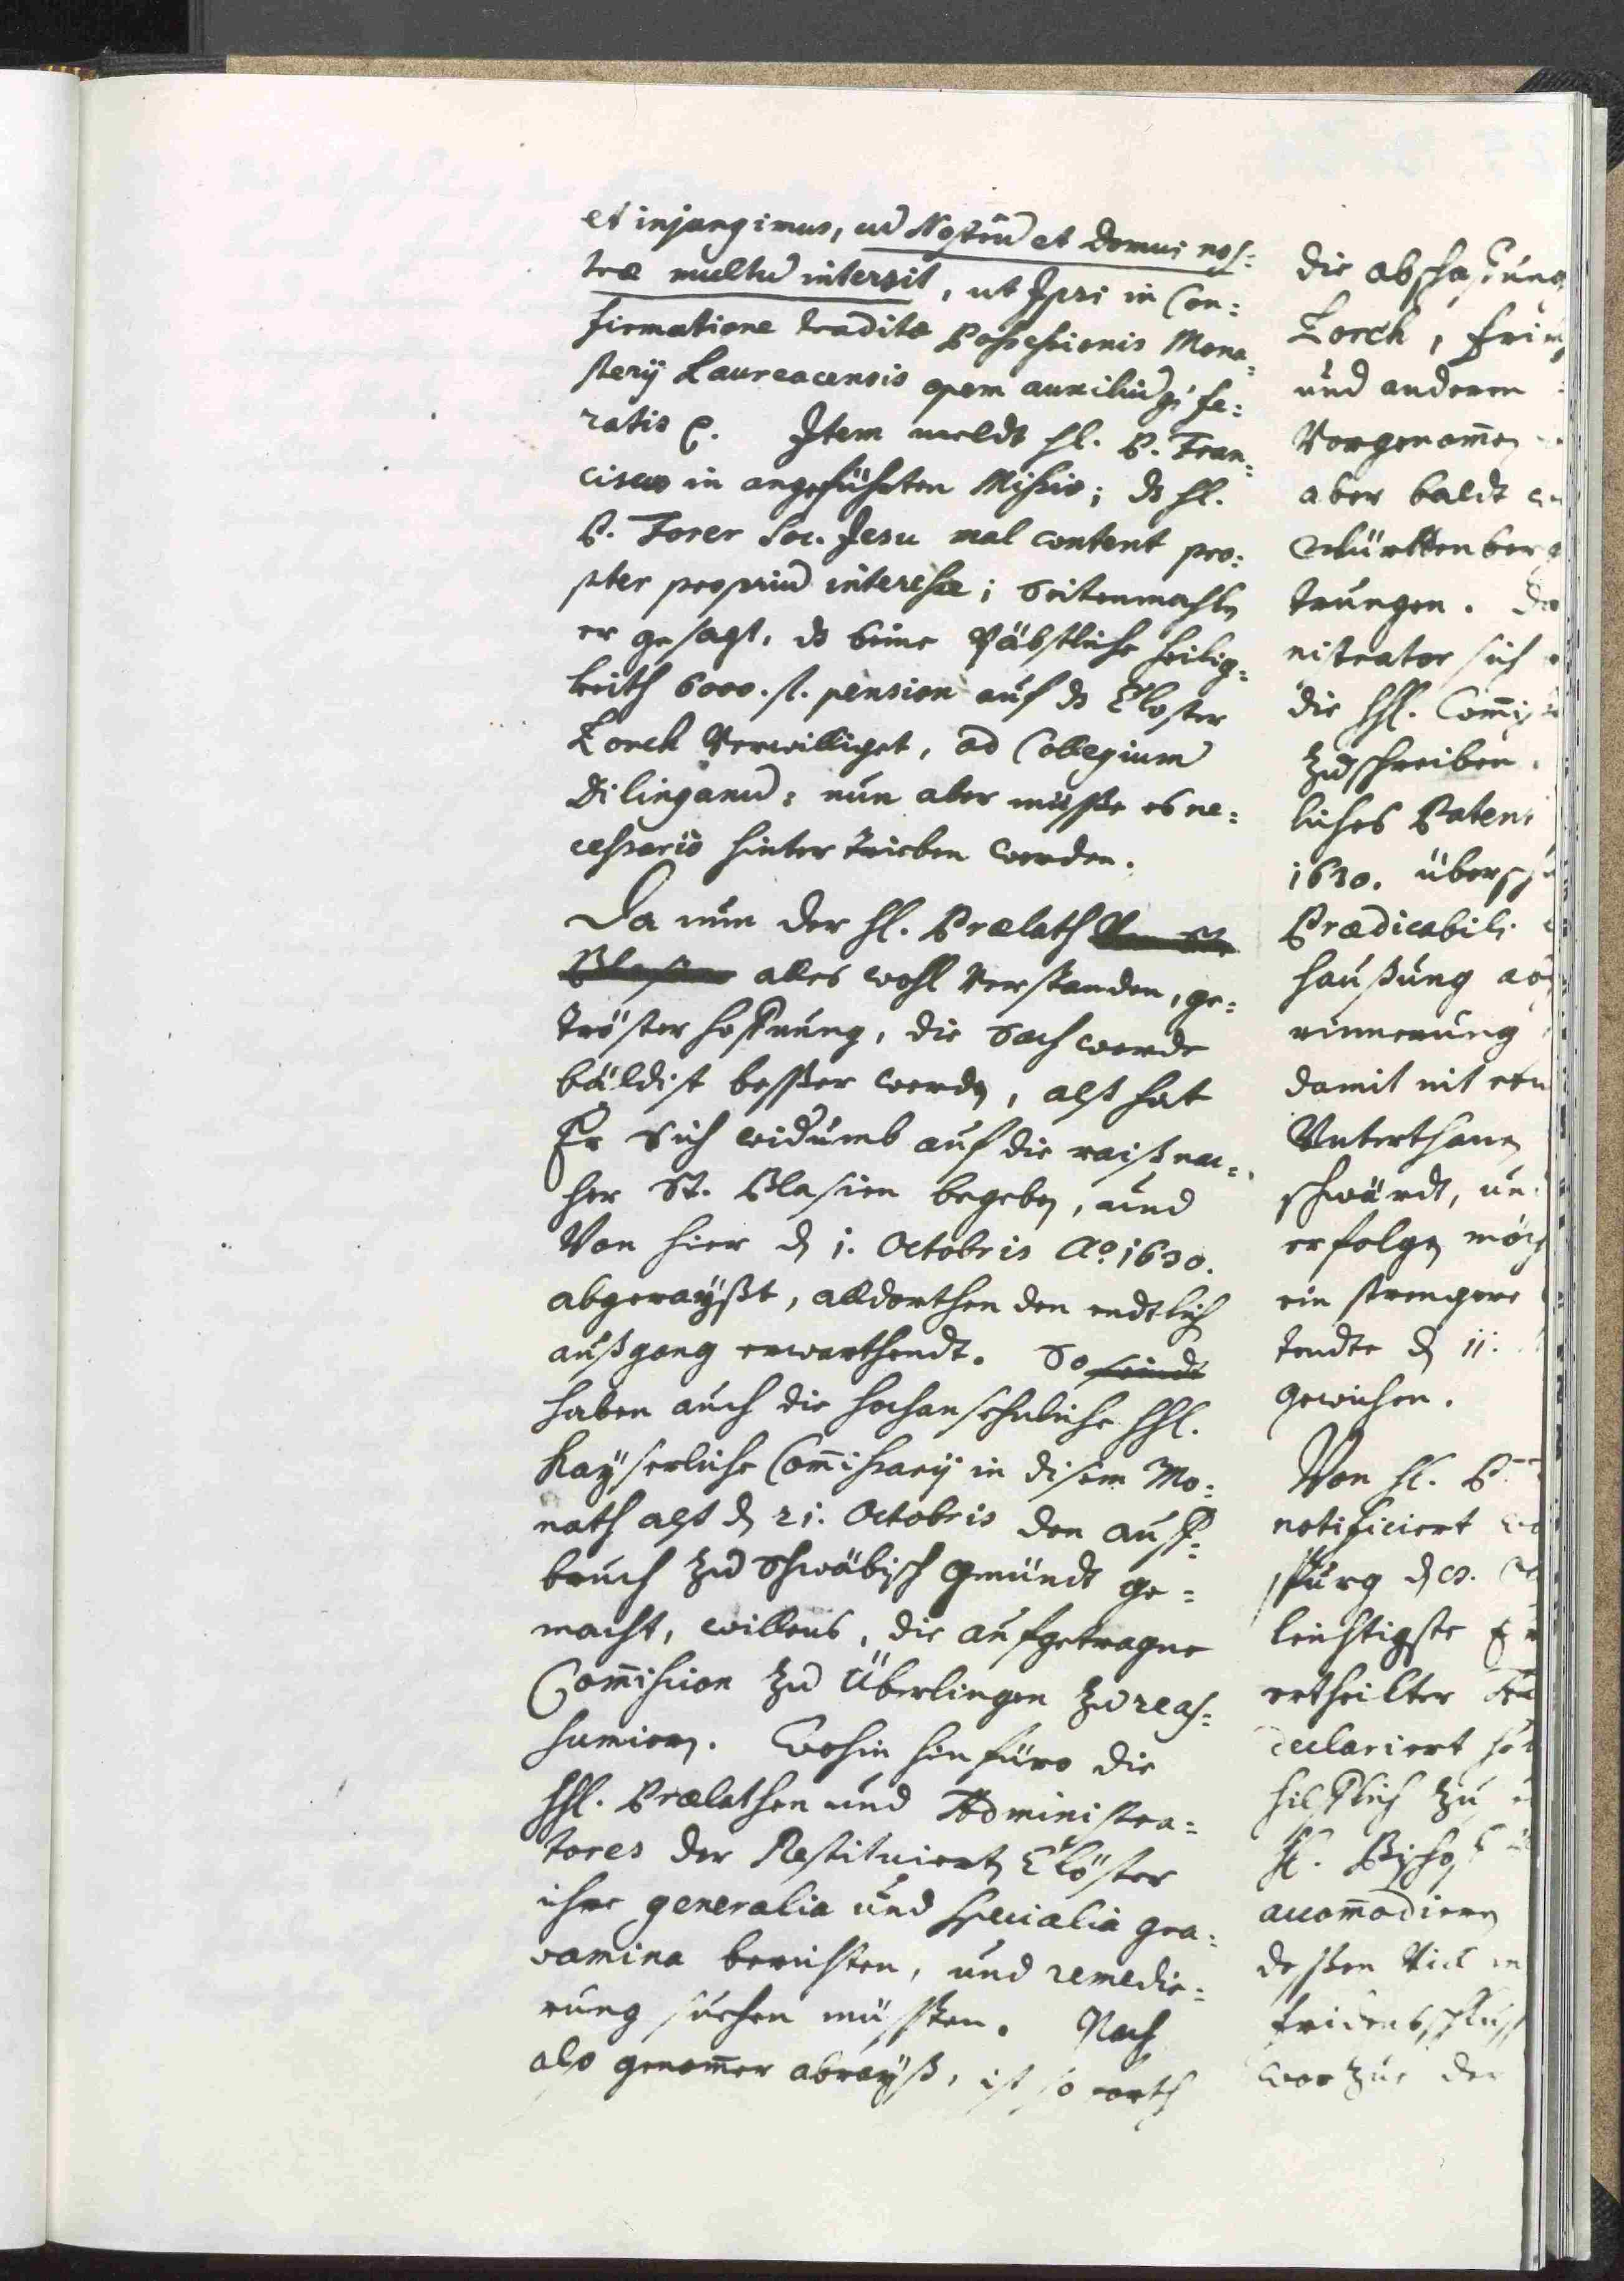 et injungimus, cum Nostrum et Domui nos=
træ multum intersit, ut Ipsi in Con=
firmatione traditæ Possessionis Mona=
sterij Laureacensis opem auxiliumque fe=
ratis etc. Item meldt hl. P. Fran=
ciscus in angeführten Missiv; ds hl.
P. Forer Soc. Jesu mal content pro=
pter proprium interesse; Seitenmahlen
er gesagt, ds beime Päbstliche heilig=
keith 6000. fl. pension auf ds Closter
Lorch Verwilliget, ad Collegium
Dilinganum: nun aber müsste es ne=
cessario hinter trieben werden.
Da nun der hl. Prælath Von St.
Blasien alles wohl Verstanden, ge=
tröster hoffnung, die Sach werde
bäldist besser werden, alß hat
Er Sich widumb auf die raiß nac=
her St. Blasien begeben, und
Von hier den 1. Octobris Ao. 1630.
abgerayßt, alldorthen den endtlich
außgang erwarthendt. So seindt
haben auch die hochansehnliche hhl.
Kayserliche Commissarij in disem Mo=
nath alß den 21. Octobris den auff=
bruch zu Schwäbisch Gmündt ge=
macht, willens, die aufgetragne
Commission zu Überlingen zu reas=
sumiern. Wohin hinfüro die
hhl. Prælathen und Administra=
tores der Restituierten Clöster
ihre generalia und specialia gra=
vamina berichten, und remedie=
rung suchen müssten. Nach
also genommer abrayß, ist so
die abschaffung
Lorch,
und anderen
Vorgenommen
aber baldt
Württenberg
trungen.
nistrator sich
die hhl.
zuschreiben.
liches Patent
1630.
Prædicabili
haußung
rinnerung
damit nit
Unterthanen
schwärdt,
erfolgen
ein strengere
tendte den 11.
gewichen.
Von hl. P.
notificiert
spurg den
leichtigste
ertheilter
declariert
hilfflich zu
hl. Bischoff
accommodiern
dessen
fridensschluss
worzue der